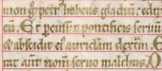 mon g̃ petr̃ habens gladiũ: edux
eũ. Et p̃cussit pontificis seruũ
⁊ abscidit ei auriculam dextm̃. E
rat aut̃ nom̃ seruo malchus.